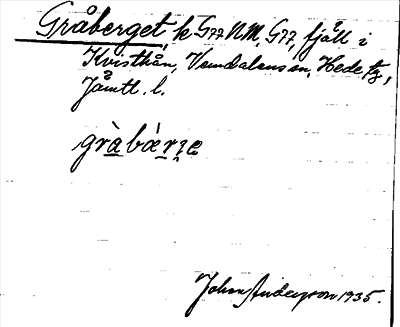 Gråberget, k G77 NM, G77, fjäll i
Kvisthån, Vemdalens sn, Hede tg,
Jämtl. l.
gràbárze
Johan Anderson 1935.